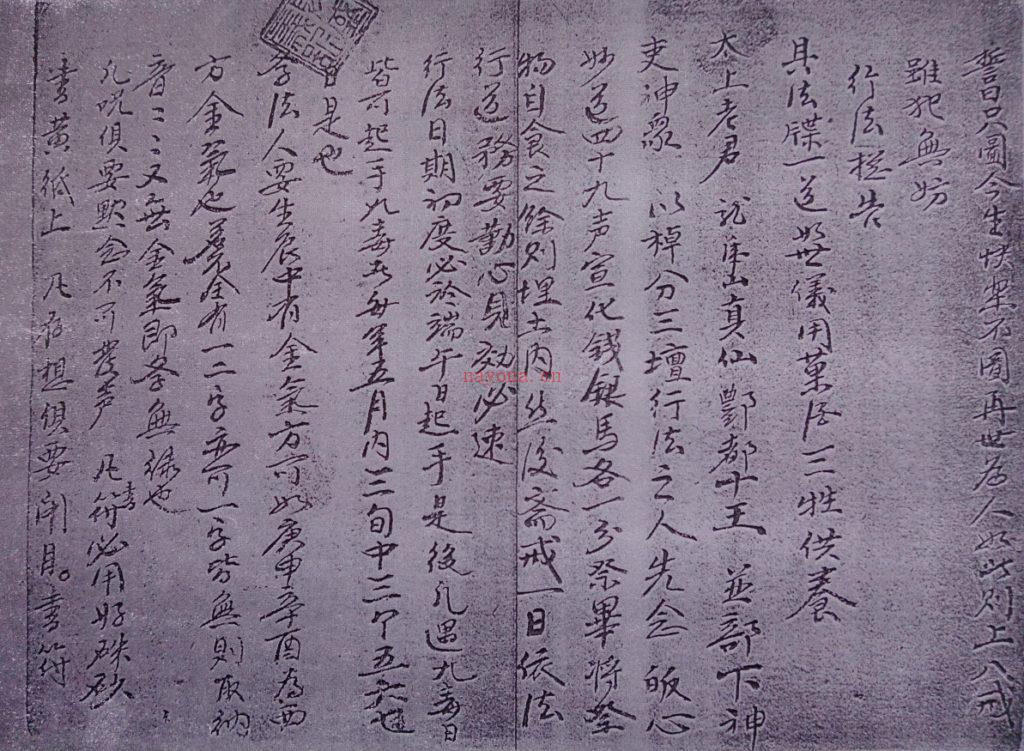 誓曰只圖今生快樂不圖再世為人如此則上八戒
雖犯無妨
行法控告
具法牒一道如世儀用菓酒三牲供養
太上老君 龍虎山真仙酆都十王 並部下神
吏神眾 以棹分三壇行法之人先念皈心
妙道四十九声宣化錢銀馬各一分祭畢將祭
物自食之餘則埋土內然後斎戒一日依法
行道務要勤心見効必速
行法日期初度必於端午日起手是後凡遇九毒日
皆可起手九毒者每年五月內三旬中三个五六七
日是也
學法人要生辰中有金氣方可如庚申辛酉為西
方金氣也若全有一二字亦可一字皆無則取納
音二二又無金氣即學無緣也
凡咒俱要默念不可發声 凡書符必用好硃砂
書黃紙上 凡存想俱要闭目。書符
nayona.cn